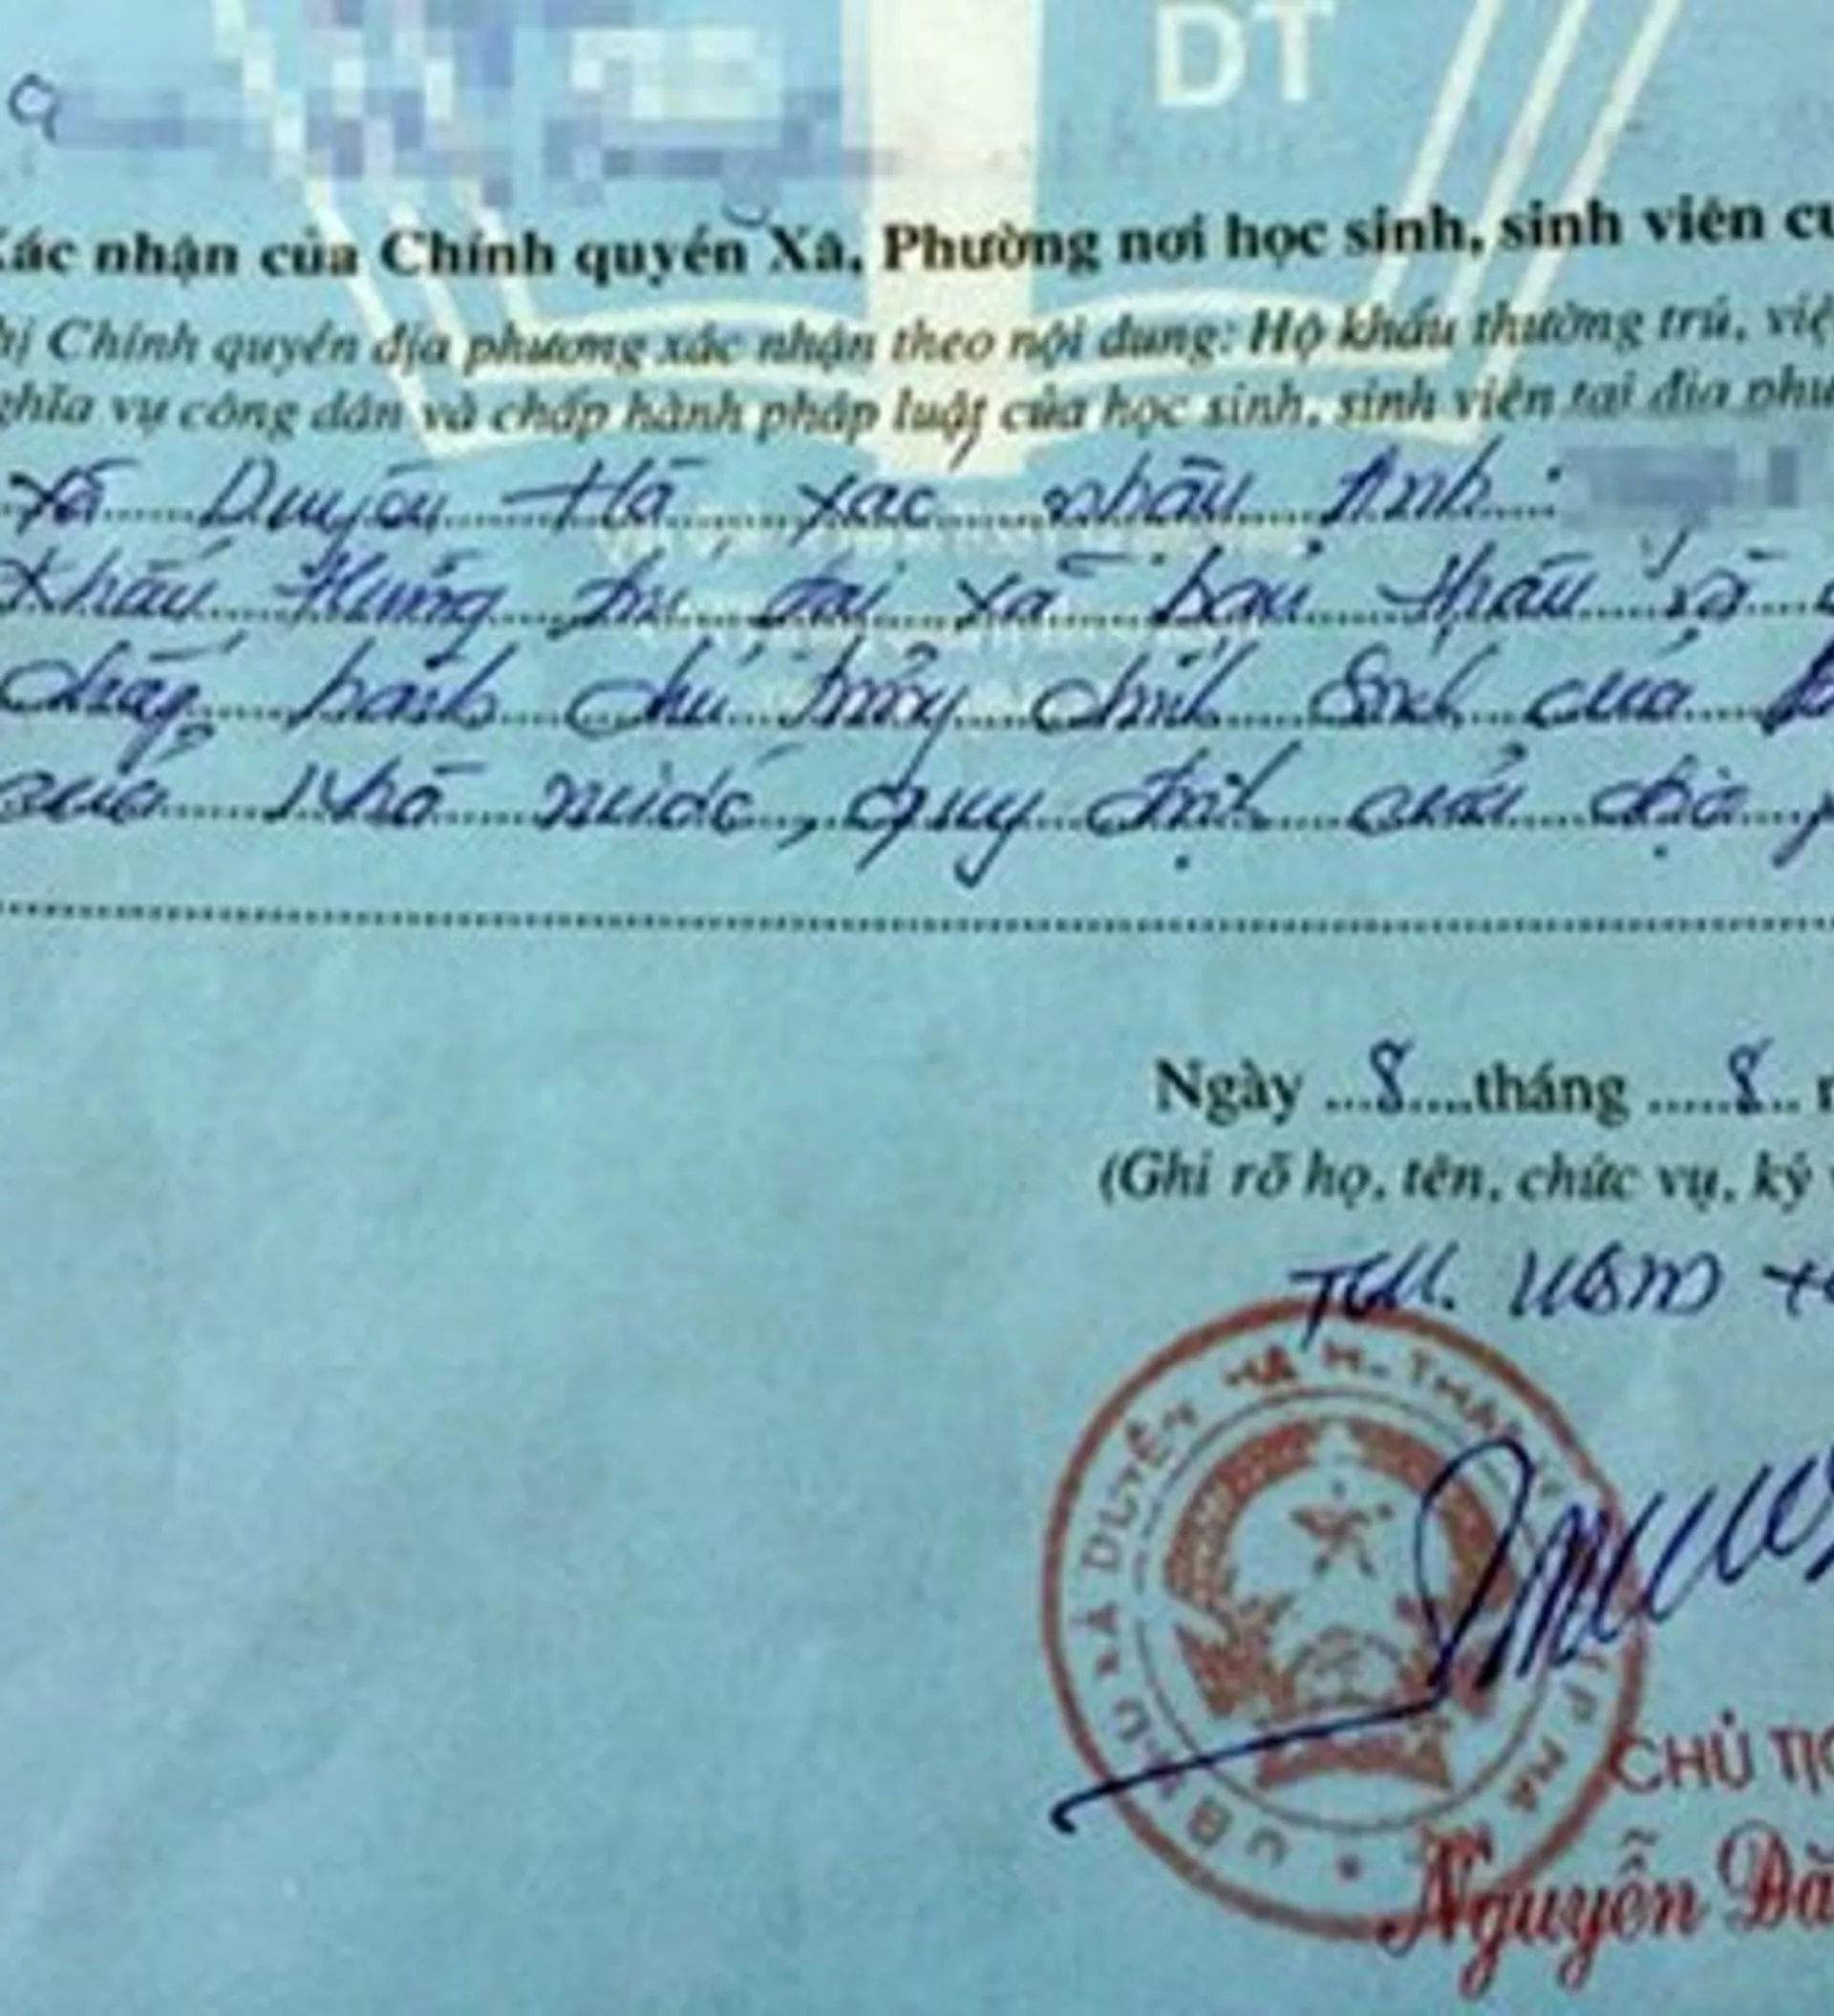 DT
Xác nhận của Chính quyền Xã, Phường nơi học sinh, sinh viên cư
hị Chính quyền địa phương xác nhận theo nội dung: Hộ khẩu thường trú, việ
ghĩa vụ công dân và chấp hành pháp luật của học sinh, sinh viên tại địa phư
Xã Duyên Hà xác nhận Anh:
Khẩu thường trú tại xã bản thân và
chấp hành chủ trương chính sách của
của Nhà nước, quy định của địa
Ngày 8 tháng 8
(Ghi rõ họ, tên, chức vụ, ký
TM. UBND
U.B.N.D XÃ DUYÊN HÀ H. THANH TRÌ TP HÀ
CHỦ TỊC
Nguyễn Đă